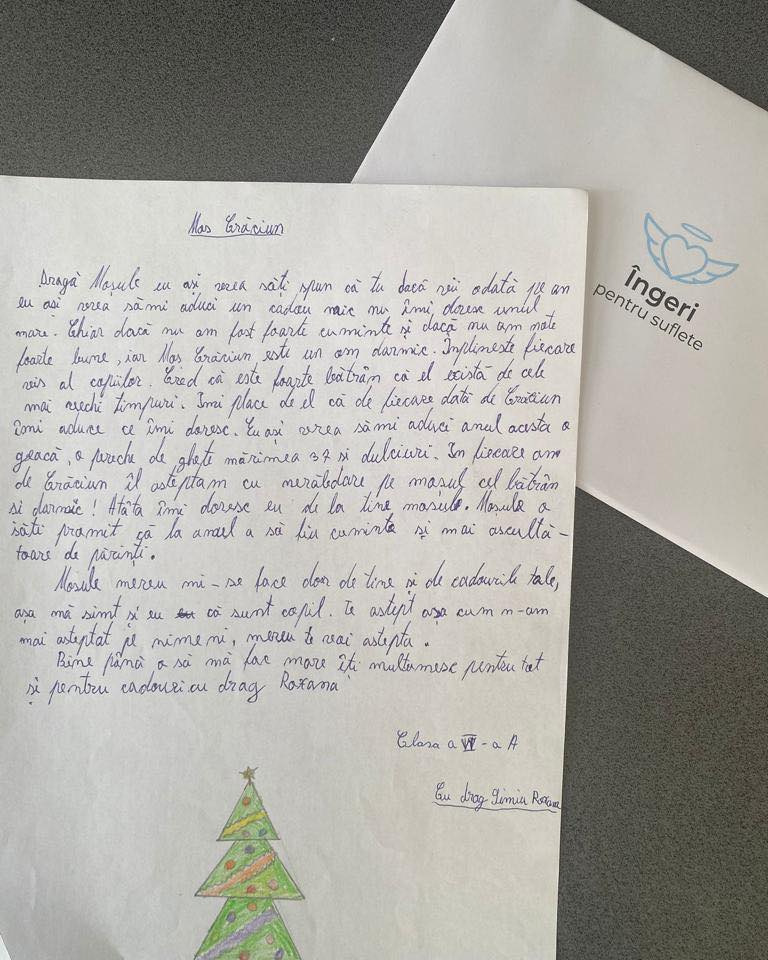 Mos Crăciun
Dragă Moșule eu ași vrea săți spun că tu dacă vii odată pe an
eu ași vrea sămi aduci un cadou mic nu îmi doresc unul
mare. Chiar dacă nu am fost foarte cuminte și dacă nu am note
foarte bune, iar Mos Crăciun este un om darnic. Inplinește fiecare
vis al copiilor. Cred că este foarte bătrân că el există de cele
mai vechi timpuri. Imi place de el că de fiecare dată de Crăciun
îmi aduce ce îmi doresc. Eu ași vrea sămi aduci anul acesta o
geacă, o pereche de ghete mărimea 37 si dulciuri. In fiecare an
de Crăciun îl asteptam cu nerăbdare pe moșul cel bătrân
si darnic! Atâta îmi doresc eu de la tine moșule. Moșule o
săti promit că la anul o să fiu cuminte și mai ascultă-
toare de părinți.
Mosule mereu mi-se face dor de tine și de cadourile tale,
așa mă simt și eu că sunt copil. Te astept așa cum n-am
mai asteptat pe nimeni, mereu te voi astepta.
Bine până o să mă fac mare îți multumesc pentru tot
și pentru cadouri.cu drag Roxana
Clasa a VI-a A
Cu drag Roxana
Îngeri
pentru suflete